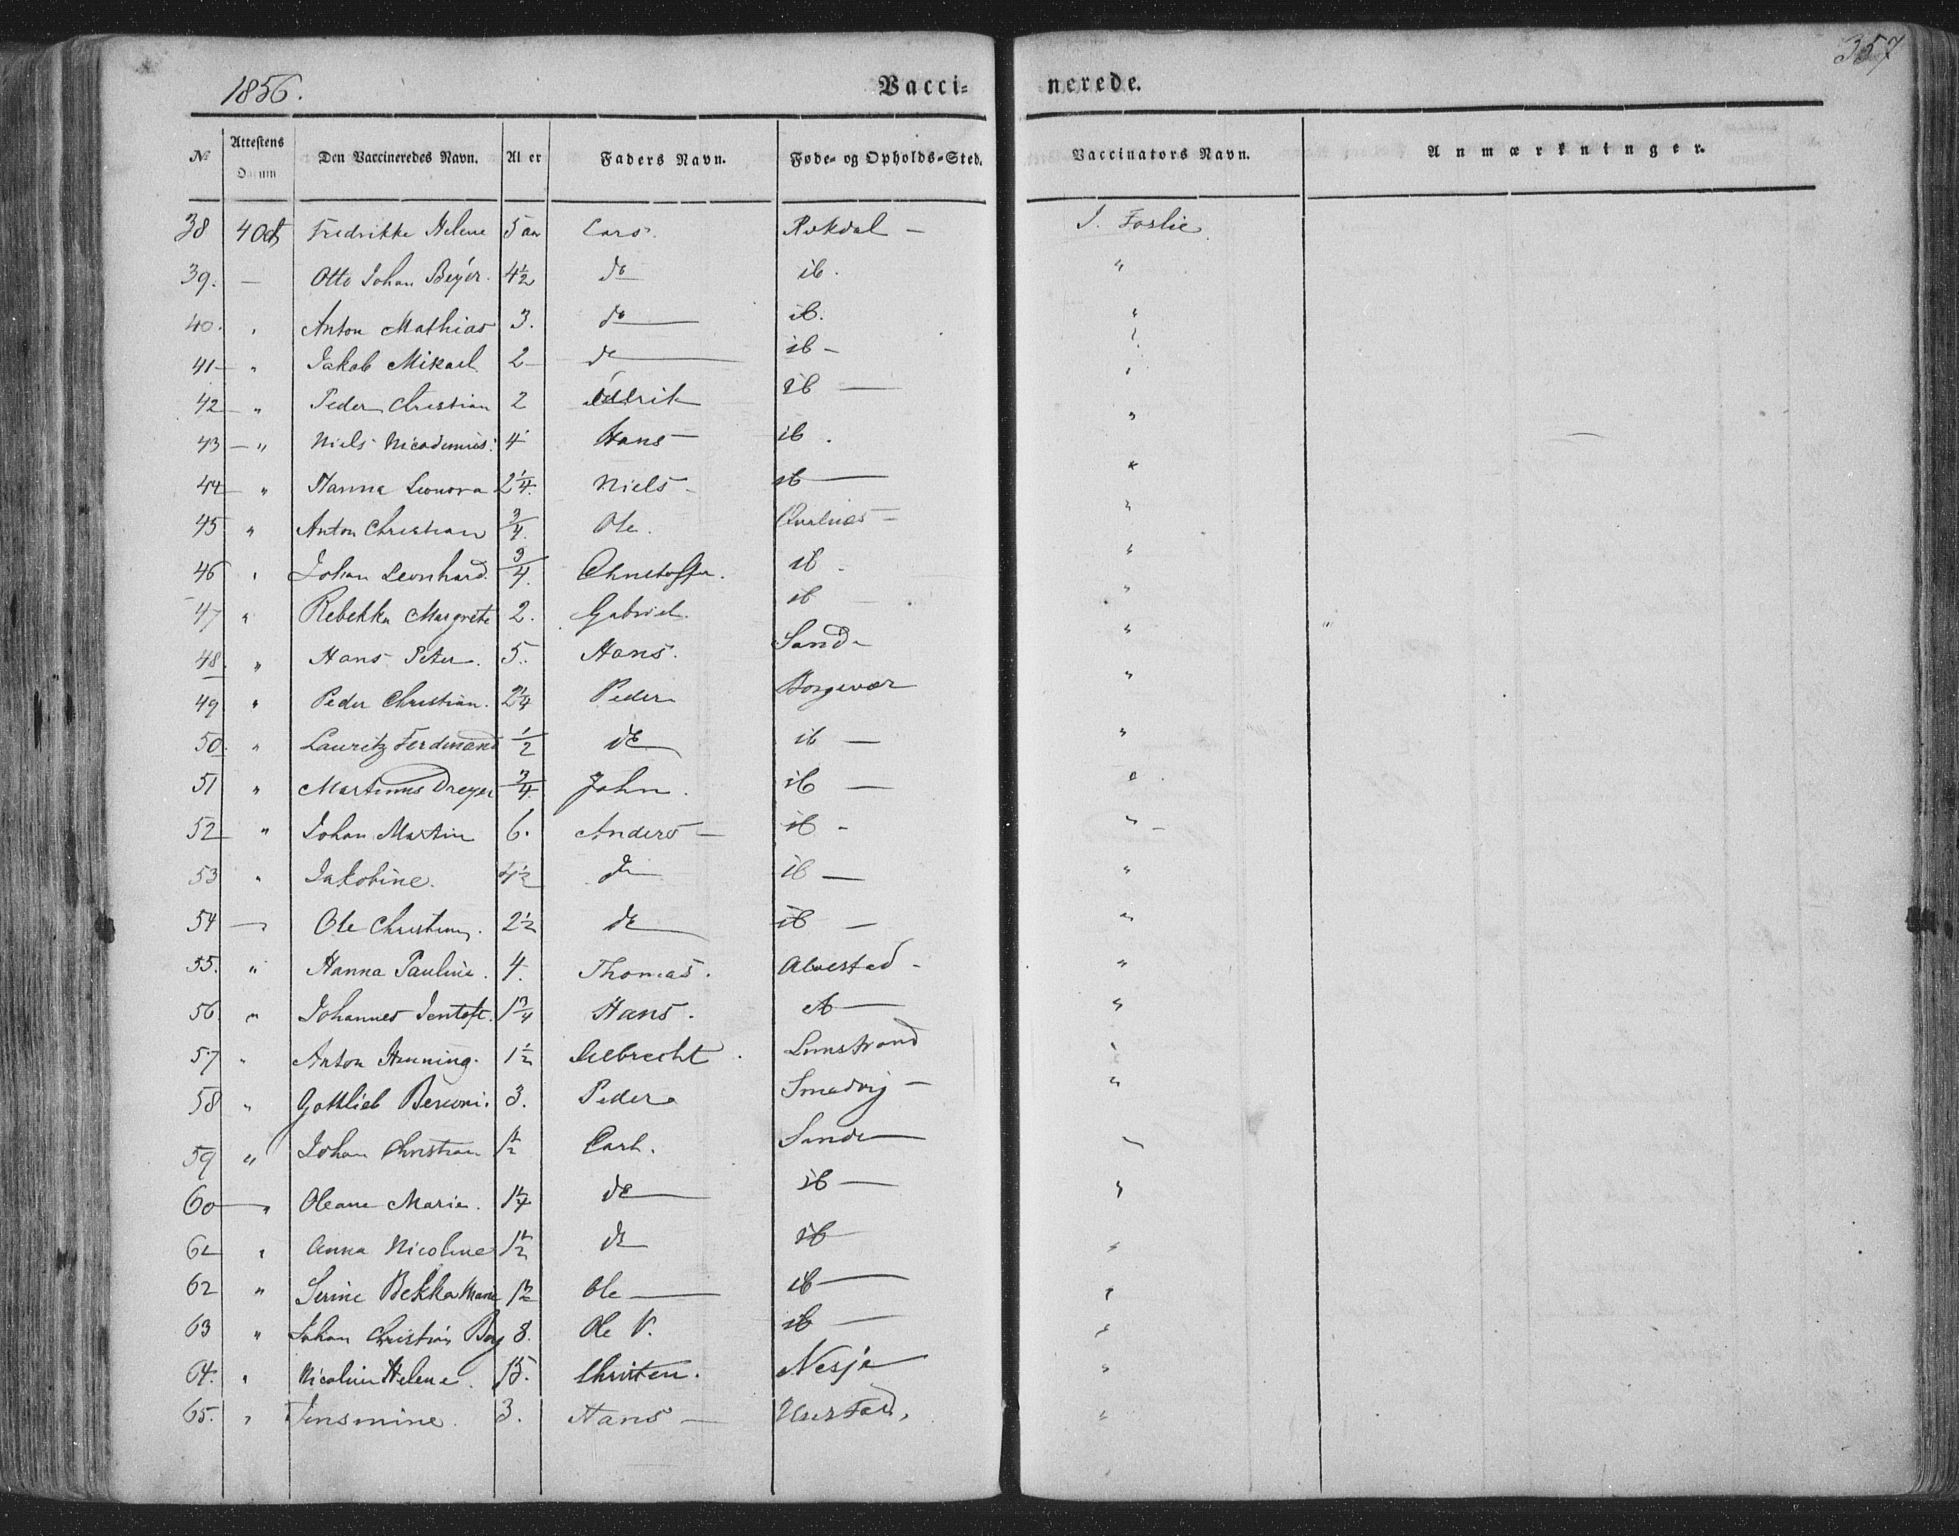 357
1856. Vacci- nerede.
No Attestens Datum Den Vaccineredes Navn. Alder Faders Navn. Føde- og Opholds-Sted. Vaccinators Navn. Anmærkninger.
38 4 Oct Fredrikke Helene 5 aar Lars. Rekdal — J. Foslie
39. — Otto Johan Beyer. 4½ do ib. "
40. " Anton Mathias 3. do — ib. "
41 — " Jakob Mikael 2 — do — ib — "
42 — " Peder Christian 2 ib — "
43 — " Niels Nicodemus. 4 Hans — ib. "
44 — " Hanna Leonora 2¼. Niels — ib — "
45 " Anton Christian ¾. Ole. —
46 " Johan Leonhard. ¾. Christoffer. ib. "
47 " Rebekka Margrete 2. Gabriel. ib — "
48. " Hans Peter. 5. Hans. Sand — "
49 " Peder Christian. 2¼ Peder Borgevær "
50. " Lauritz Ferdinand ½ do ib — "
51 " Martinus Dreyer ¾. John. ib — "
52 — " Johan Martin 6. Anders — ib — "
53 " Jakobine. 4½ do ib — "
54 — Ole Christian. 2½ do ib — "
55. " Hanna Pauline. 4. Thomas. Alvestad — "
56. " Johannes Jentoft. 1¾ Hans. ib — "
57 " Anton Henning. 1½ . "
58 " Gottlieb 3. Peder Smedvig — "
59 " Johan Christian Carl. Sande — "
60 — " Oleane Marie. do — ib — "
" Anna Nicoline do ib — "
62 " Serine Bekka Marie Ole — ib — "
63 " Johan Christian 8. Ole V. ib — "
64. " Nicoline Helene. 15. Christen. Nesje "
65. " Jensmine. 3. Hans — "